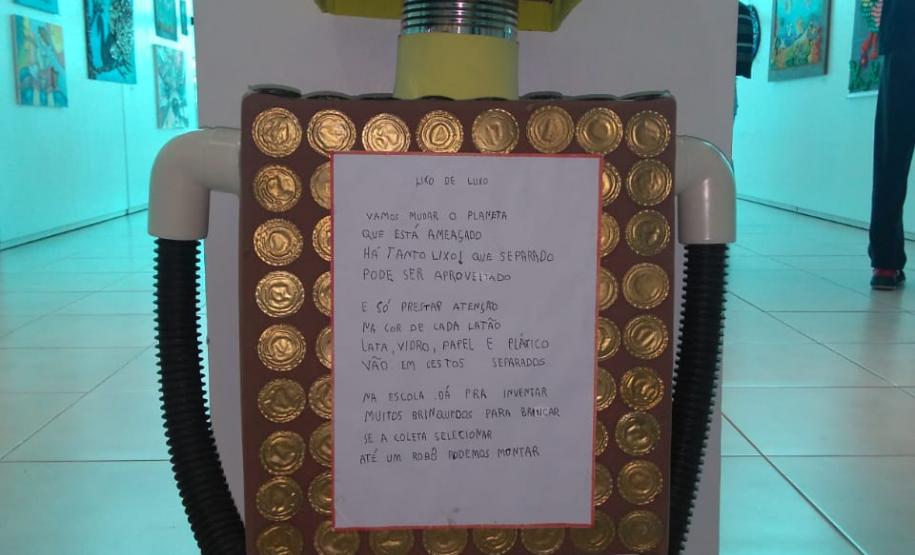 LIXO DE LUXO
VAMOS MUDAR O PLANETA
QUE ESTÁ AMEAÇADO
HÁ TANTO LIXO! QUE SEPARADO
PODE SER APROVEITADO
E SÓ PRESTAR ATENÇÃO
NA COR DE CADA LATÃO
LATA, VIDRO, PAPEL E PLÁTICO
VÃO EM CESTOS SEPARADOS
NA ESCOLA DÁ PRA INVENTAR
MUITOS BRINQUEDOS PARA BRINCAR
SE A COLETA SELECIONAR
ATÉ UM ROBÔ PODEMOS MONTAR